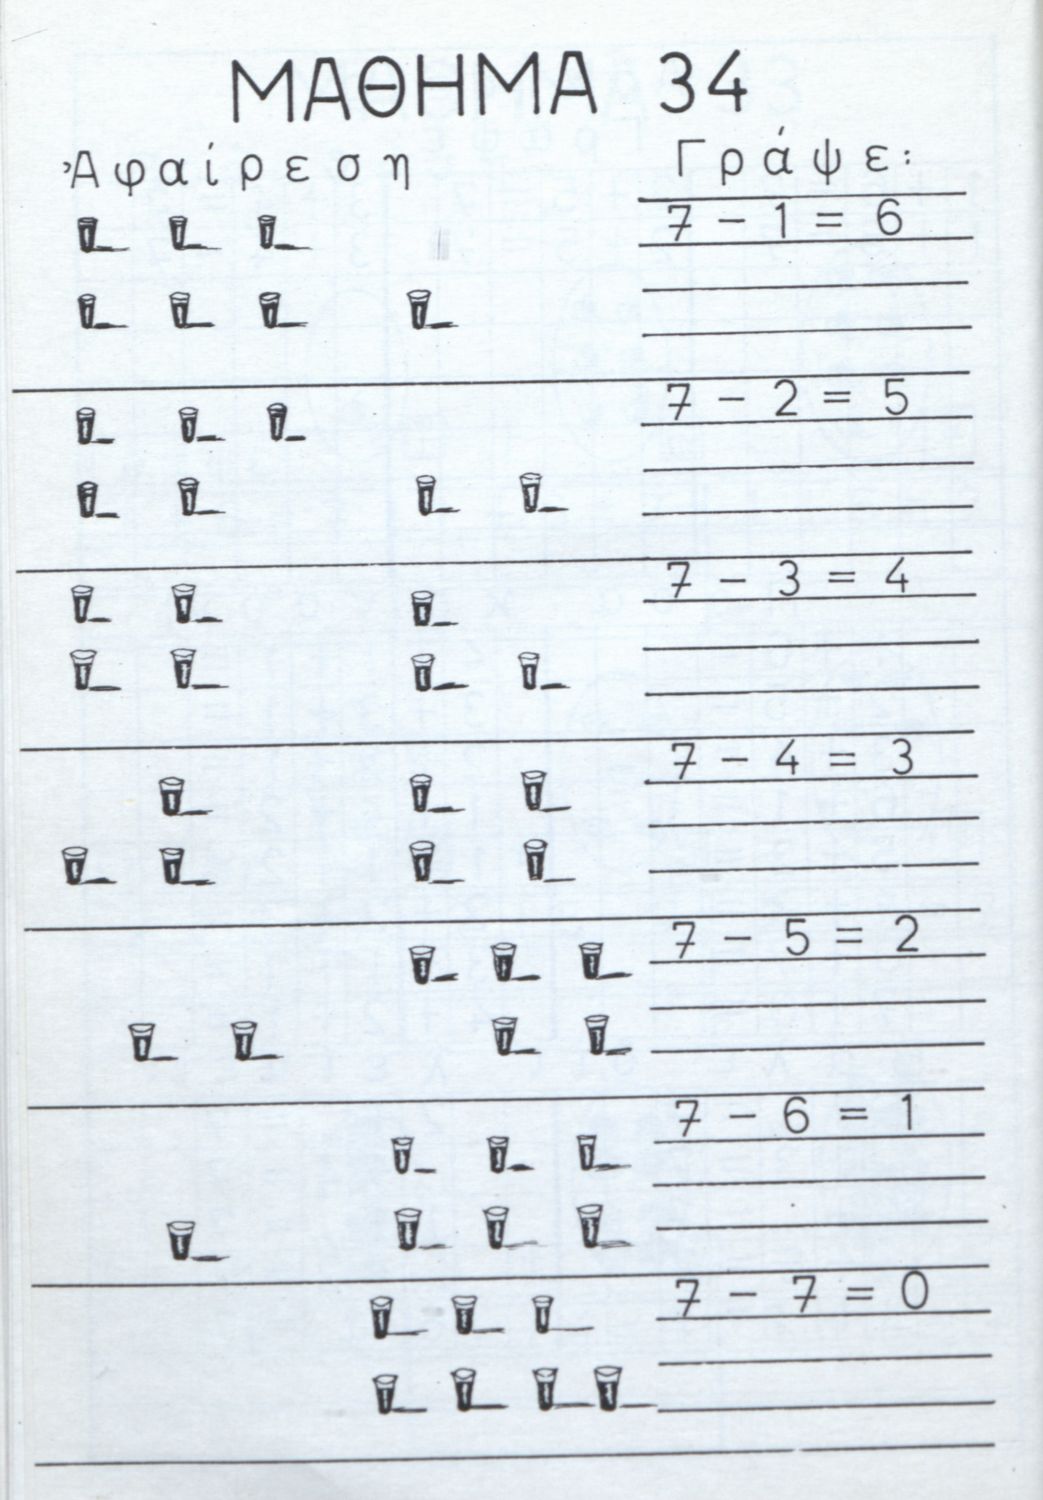 ΜΑΘΗΜΑ 34
Ἀφαίρεση
Γράψε:
7 - 1 = 6
7 - 2 = 5
7 - 3 = 4
7 - 4 = 3
7 - 5 = 2
7 - 6 = 1
7 - 7 = 0